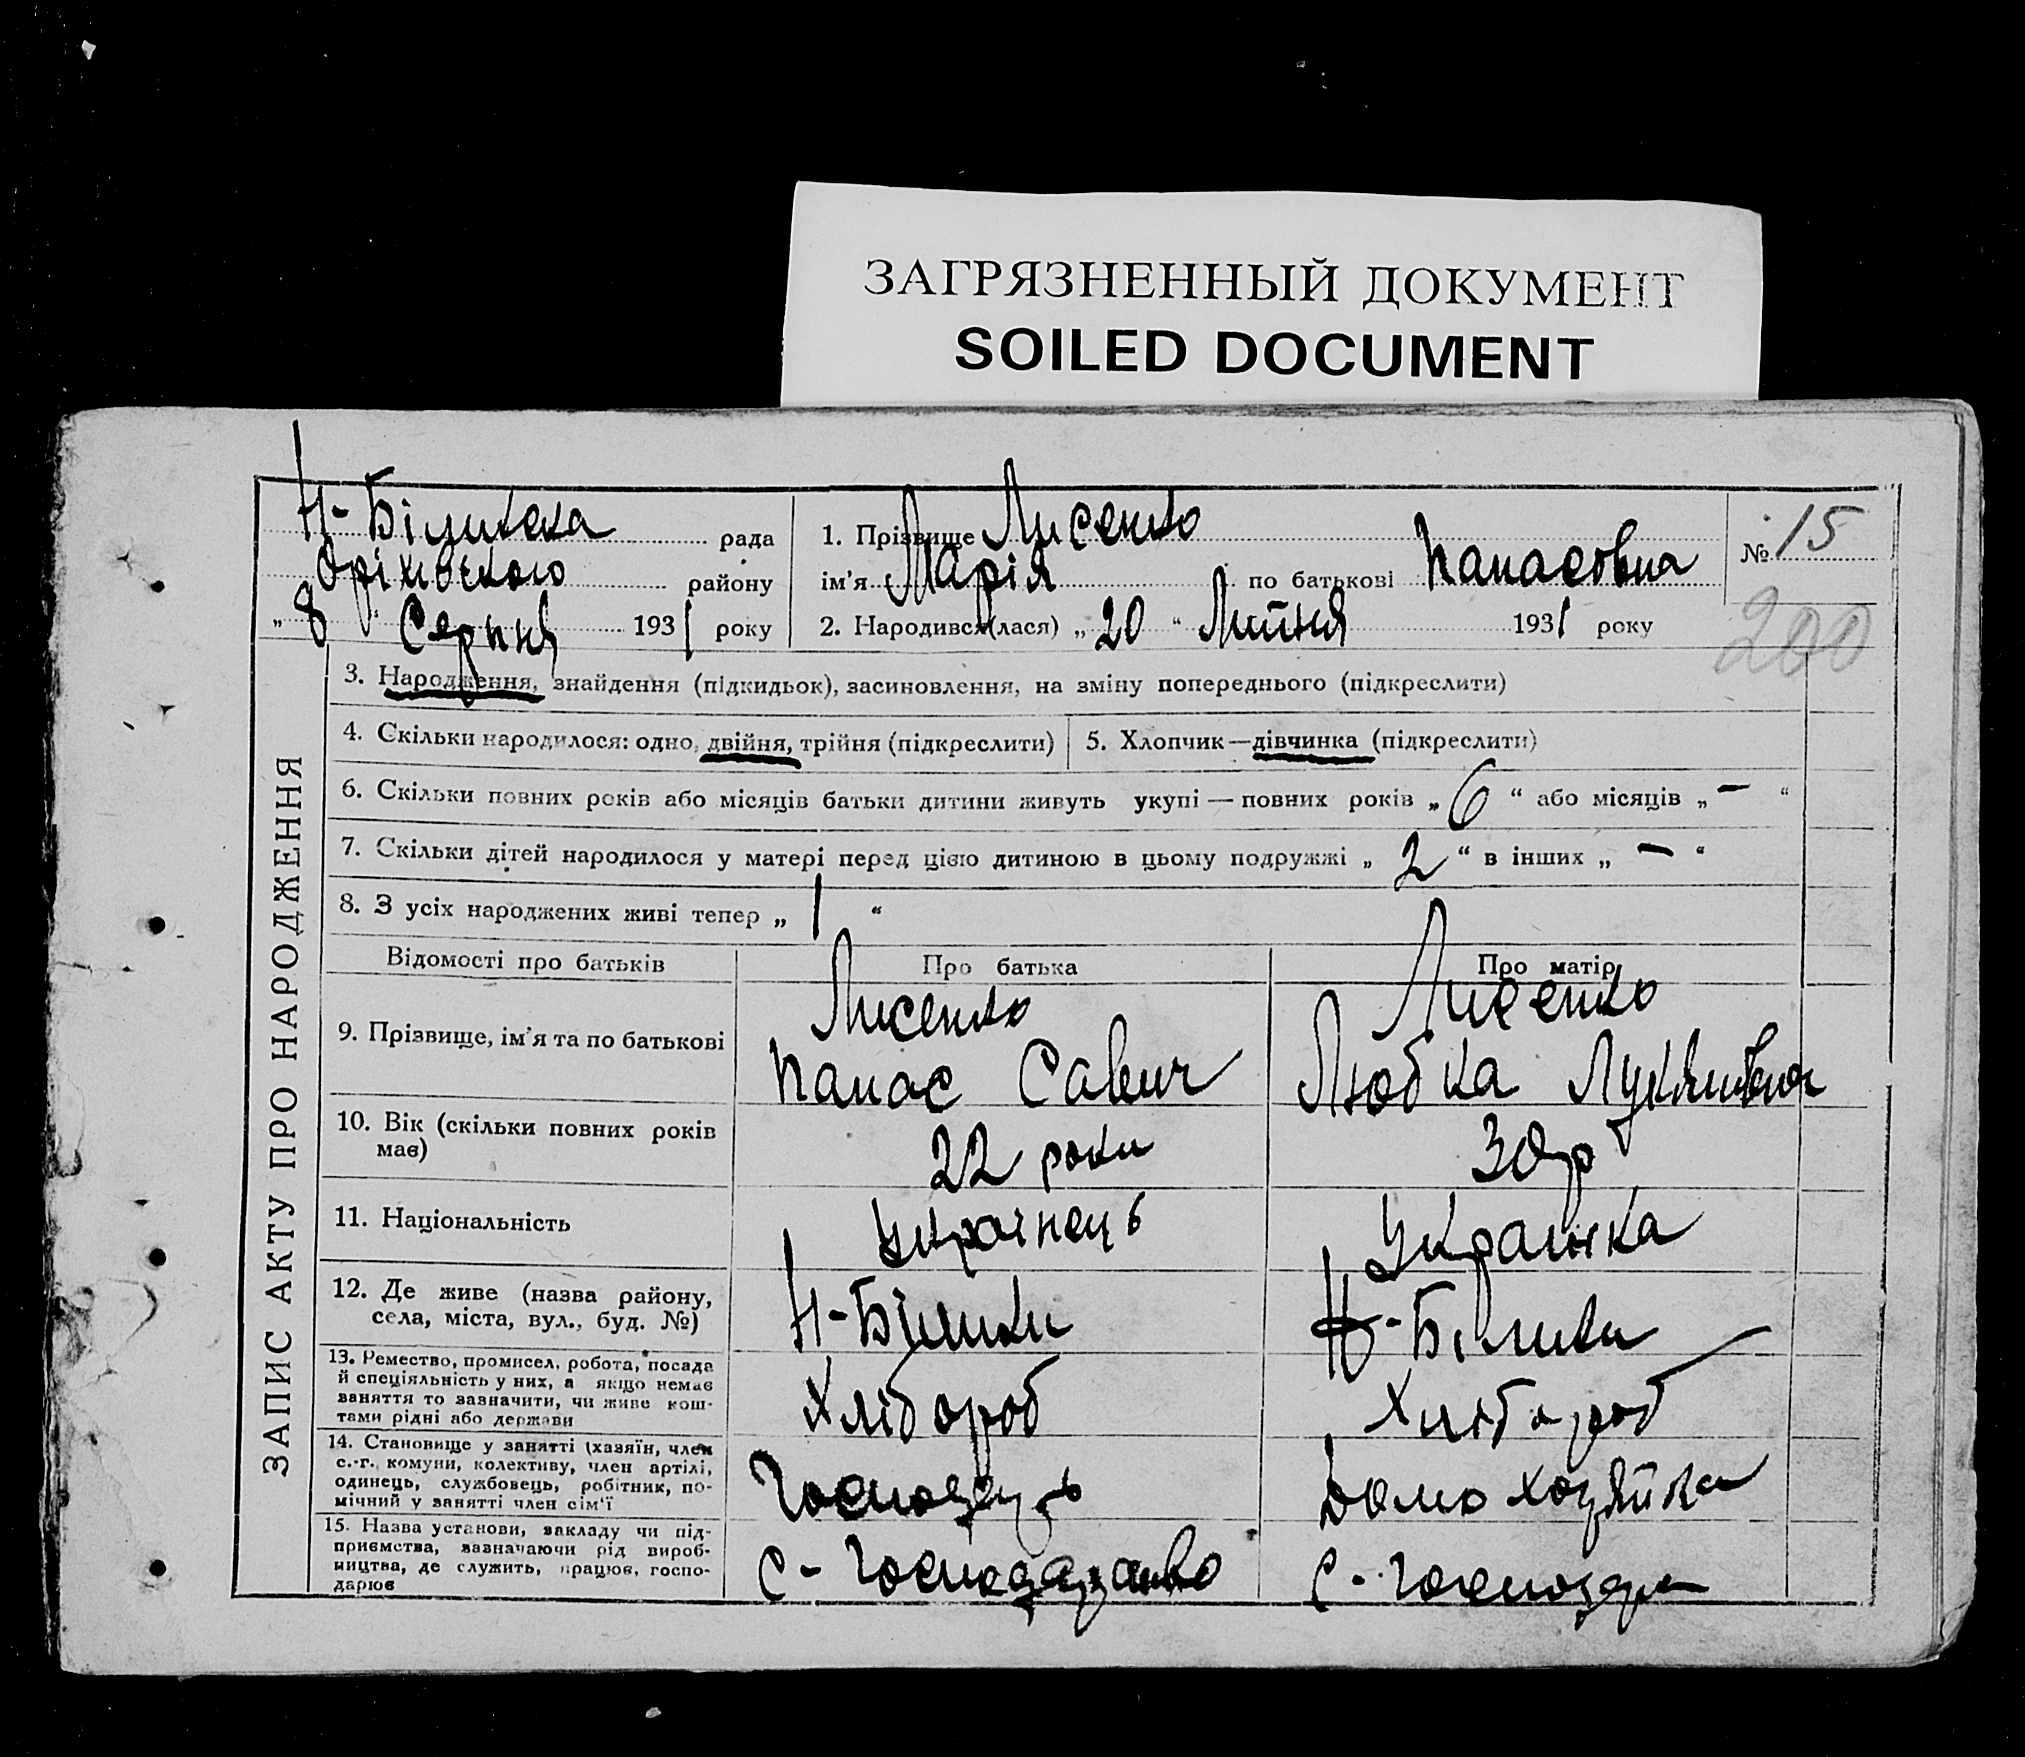 ЗАГРЯЗНЕННЫЙ ДОКУМЕНТ
SOILED DOCUMENT
ЗАПИС АКТУ ПРО НАРОДЖЕННЯ
Н-Біликска рада
Оріхівського району
„ 8 “ Серпня 1931 року
1. Прізвище Лисенко
ім'я Марія по батькові Панасовна
2. Народився(лася) „ 20 “ Липня 1931 року
№ 15
200
3. Народження, знайдення (підкидьок), засиновлення, на зміну попереднього (підкреслити)
4. Скільки народилося: одно, двійня, трійня (підкреслити)
5. Хлопчик—дівчинка (підкреслити)
6. Скільки повних років або місяців батьки дитини живуть укупі — повних років „ 6 “ або місяців „ – “
7. Скільки дітей народилося у матері перед цією дитиною в цьому подружжі „ 2 “ в інших „ – “
8. З усіх народжених живі тепер „ 1 “
Відомості про батьків Про батька Про матір
9. Прізвище, ім'я та по батькові
Лисенко
Панас Савич
Лисенко
Любка Лукянивна
10. Вік (скільки повних років
має)
22 роки
30 р
11. Національність
Українець
Украінка
12. Де живе (назва району,
села, міста, вул., буд. №)
Н-Білики
Н-Білики
13. Ремество, промисел, робота, посада
й спеціяльність у них, а якщо немає
заняття то зазначити, чи живе кош-
тами рідні або держави
Хлібороб
Хлібороб
14. Становище у занятті (хазяїн, член
с.-г. комуни, колективу, член артілі,
одинець, службовець, робітник, по-
мічний у занятті член сім'ї
Господарь
Домохозяйка
15. Назва установи, закладу чи під-
приємства, зазначаючи рід вироб-
ництва, де служить, працює, госпо-
дарює
С-Господарство
С-Господар